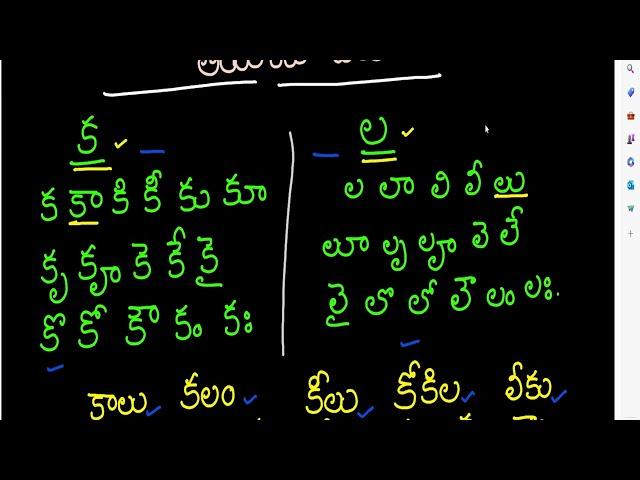 క
క కా కి కీ కు కూ
కృ కౄ కె కే కై
కొ కో కౌ కం కః
ల
ల లా లి లీ లు
లూ లృ లౄ లె లే
లై లొ లో లౌ లం లః.
కాలు కలం కీలు కోకిల లీకు